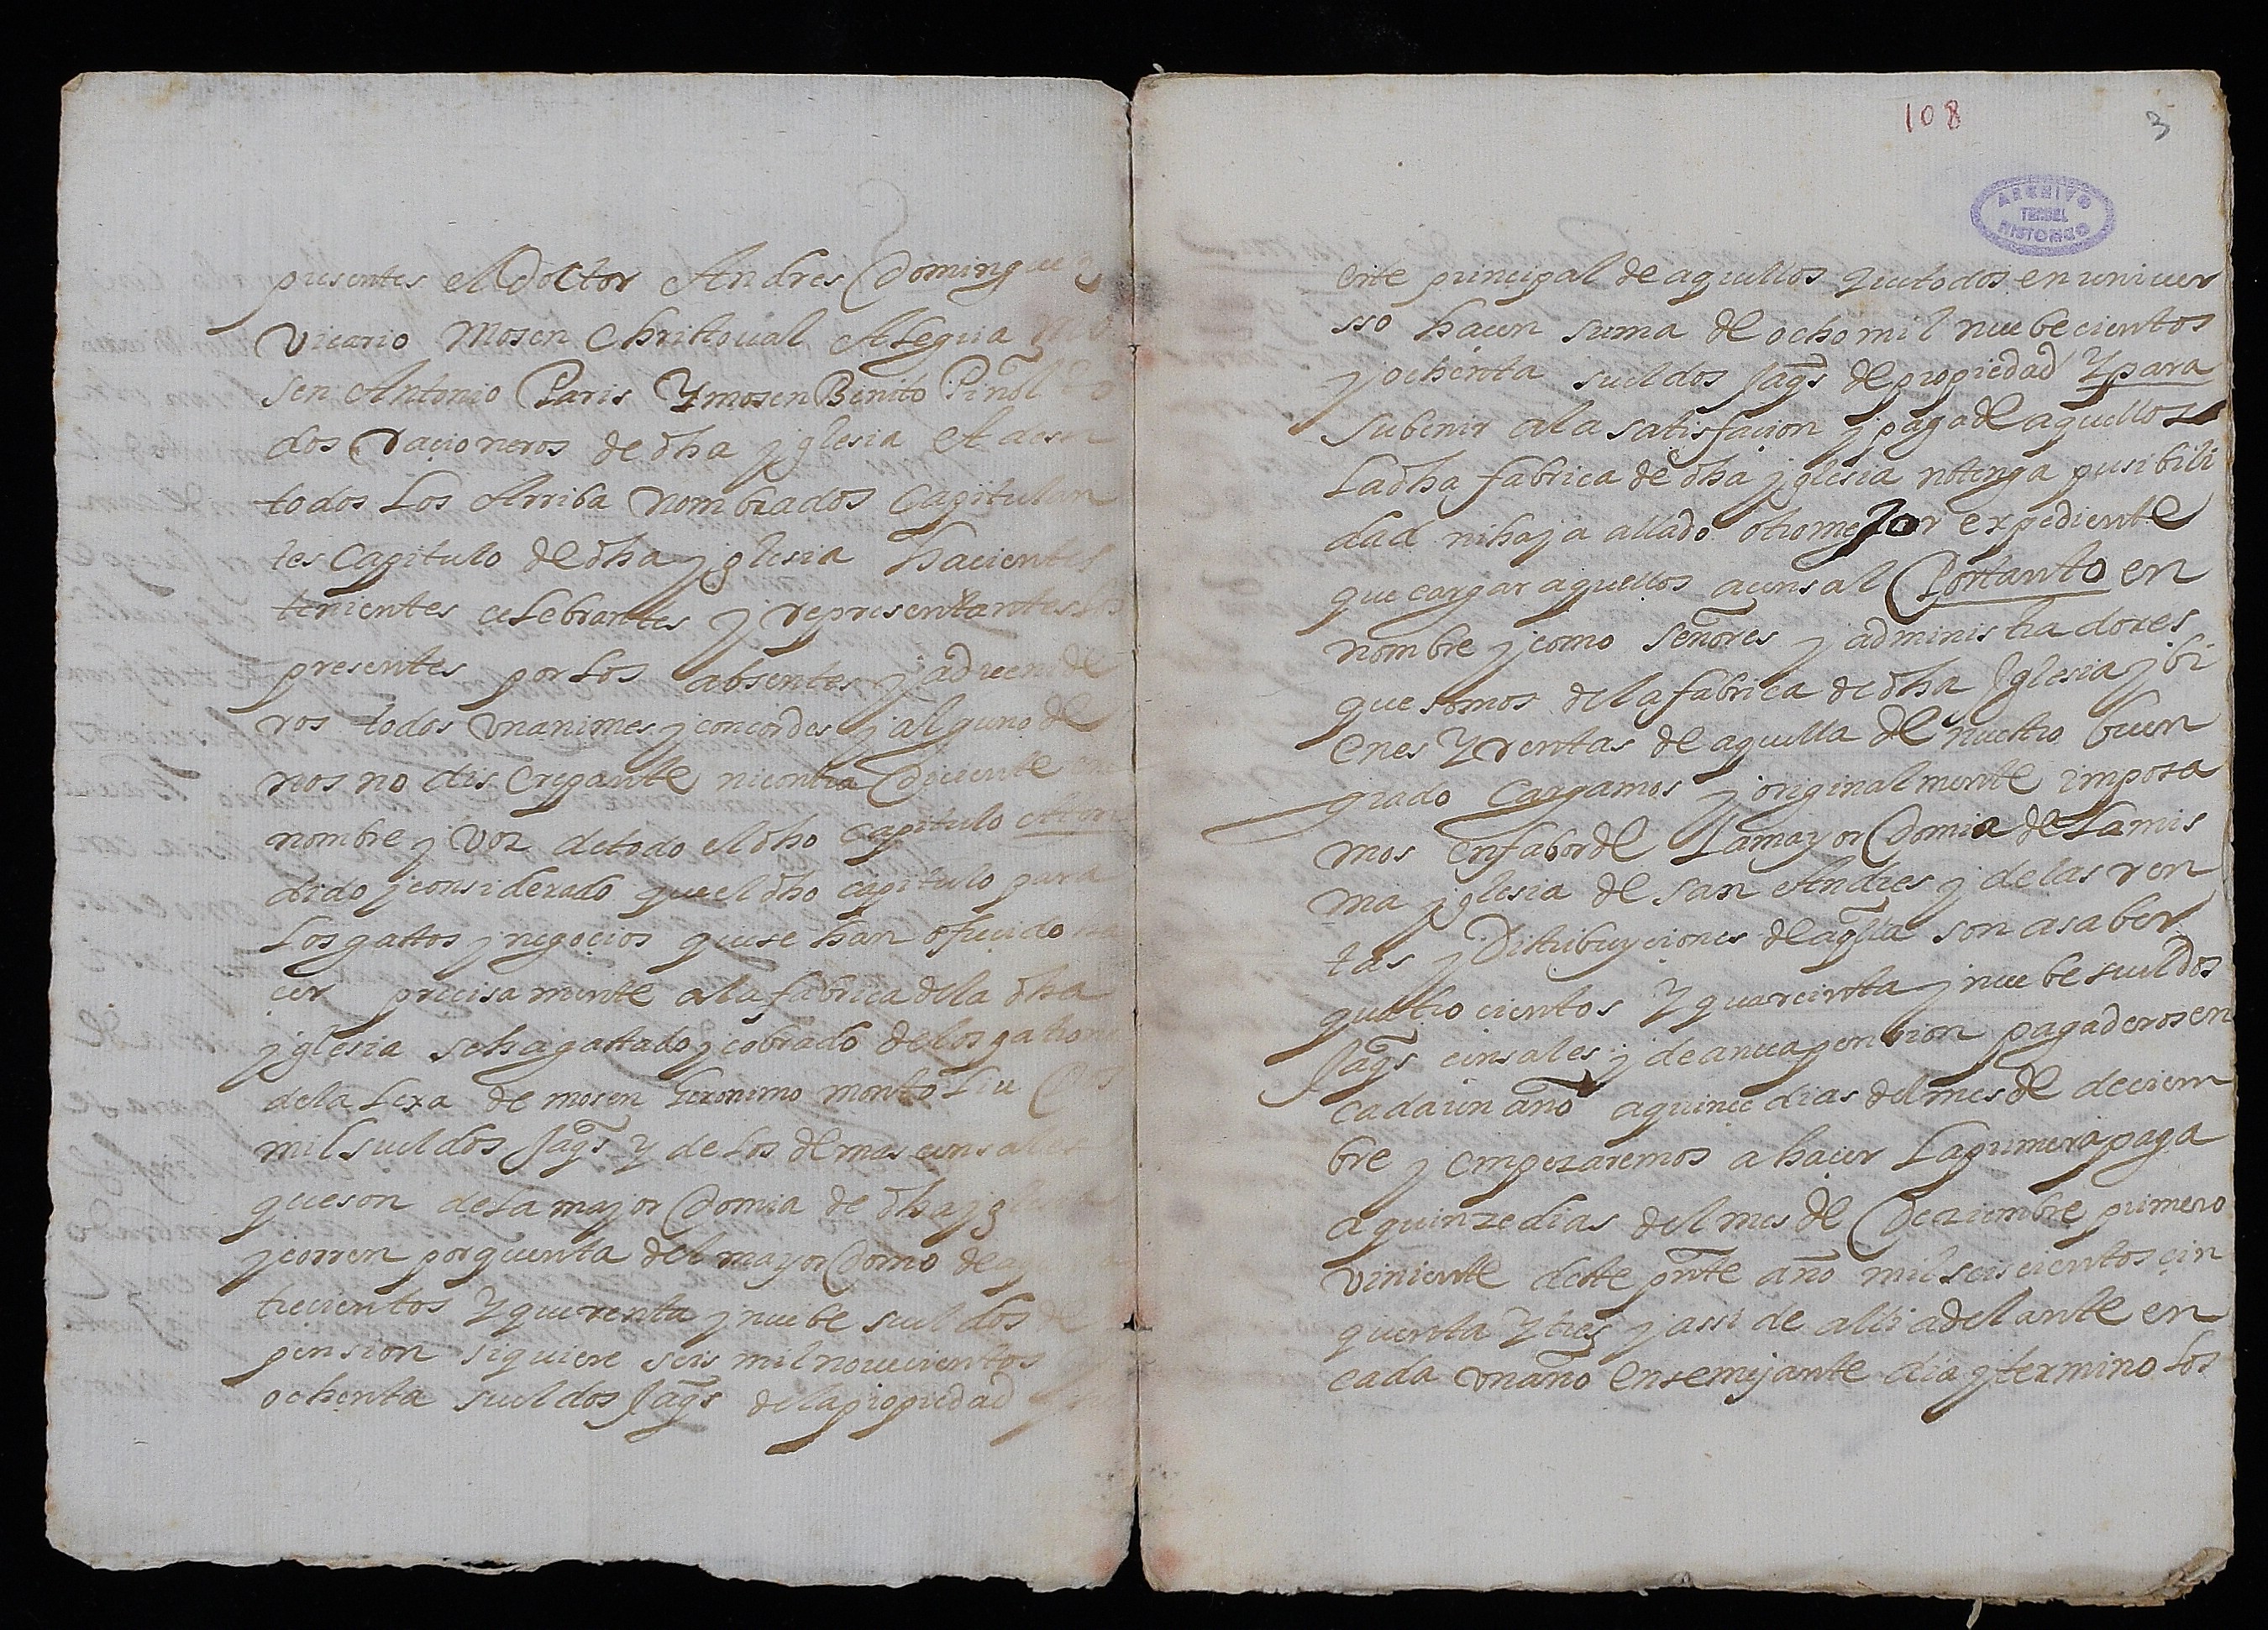 presentes el Doctor Andres Dominguez
Vicario Mosen Christoual Aleguia mo
sen Antonio Paris Y mosen Benito Piñol to
dos racioneros de dha yglesia et desi
todos Los Arriba nombrados Capitulan
tes Capitulo de dha yglesia hacientes
tenientes celebrantes y representantes los
presentes por Los absentes y aduende
ros todos vnanimes y concordes y alguno de
nos no discrepante ni contra Diciente en
nombre y Voz de todo el dho capitulo Aten
dido y considerado que el dho capitulo para
Los gastos y negocios que se han ofrecido ha
cer precisamente a la fabrica de la dha
yglesia se ha gastado y cobrado de los gastos
de la Lexa de mosen Geronimo montoliu Dos
mil sueldos Jaqs y de los demas censales
que son de La mayor Domia de dha yglesia
y corren por quenta del mayor Domo de aq
trecientos y querenta y nuebe sueldos de
pension siquiere seis mil nouecientos
ochenta sueldos Jaqs de la propiedad
108
3
ARCHIVO
TERUEL
HISTORICO
ente principal de aquellos que todos en uniuer
sso hacen suma de ocho mil nuebecientos
y ochenta sueldos Jaqs de propiedad Y para
subenir a la satisfacion y paga de aquellos
La dha fabrica de dha yglesia no tenga pusibili
dad ni haya allado otro mejor expediente
que cargar aquellos a censal Por tanto en
nombre y como señores y administradores
que somos de la fabrica de dha Iglesia y bi
enes Y rentas de aquella de nuestro buen
grado Cargamos y originalmente imposa
mos en fabor de La mayor Domia de La mis
ma yglesia de San Andres y de las ren
tas y Distribuyciones de aqlla son a saber
quatro cientos Y quareinta y nuebe sueldos
Jaqs censales y de anua pension pagaderos en
cada un año a quince dias del mes de deciem
bre y empezaremos a hacer La primera paga
a quinze dias del mes de Deziembre primero
viniente deste pnte año mil seiscientos cin
quenta Y tres y assi de alli adelante en
cada vn año en semejante dia y termino Los